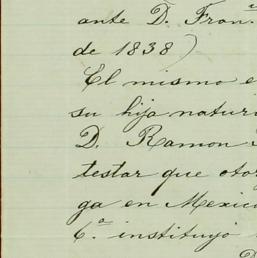 ante D. Fran.
de 1838)
El mismo e
su hija natur
D. Ramon
testar que otor
ga en Mexico
6.ª instituyo